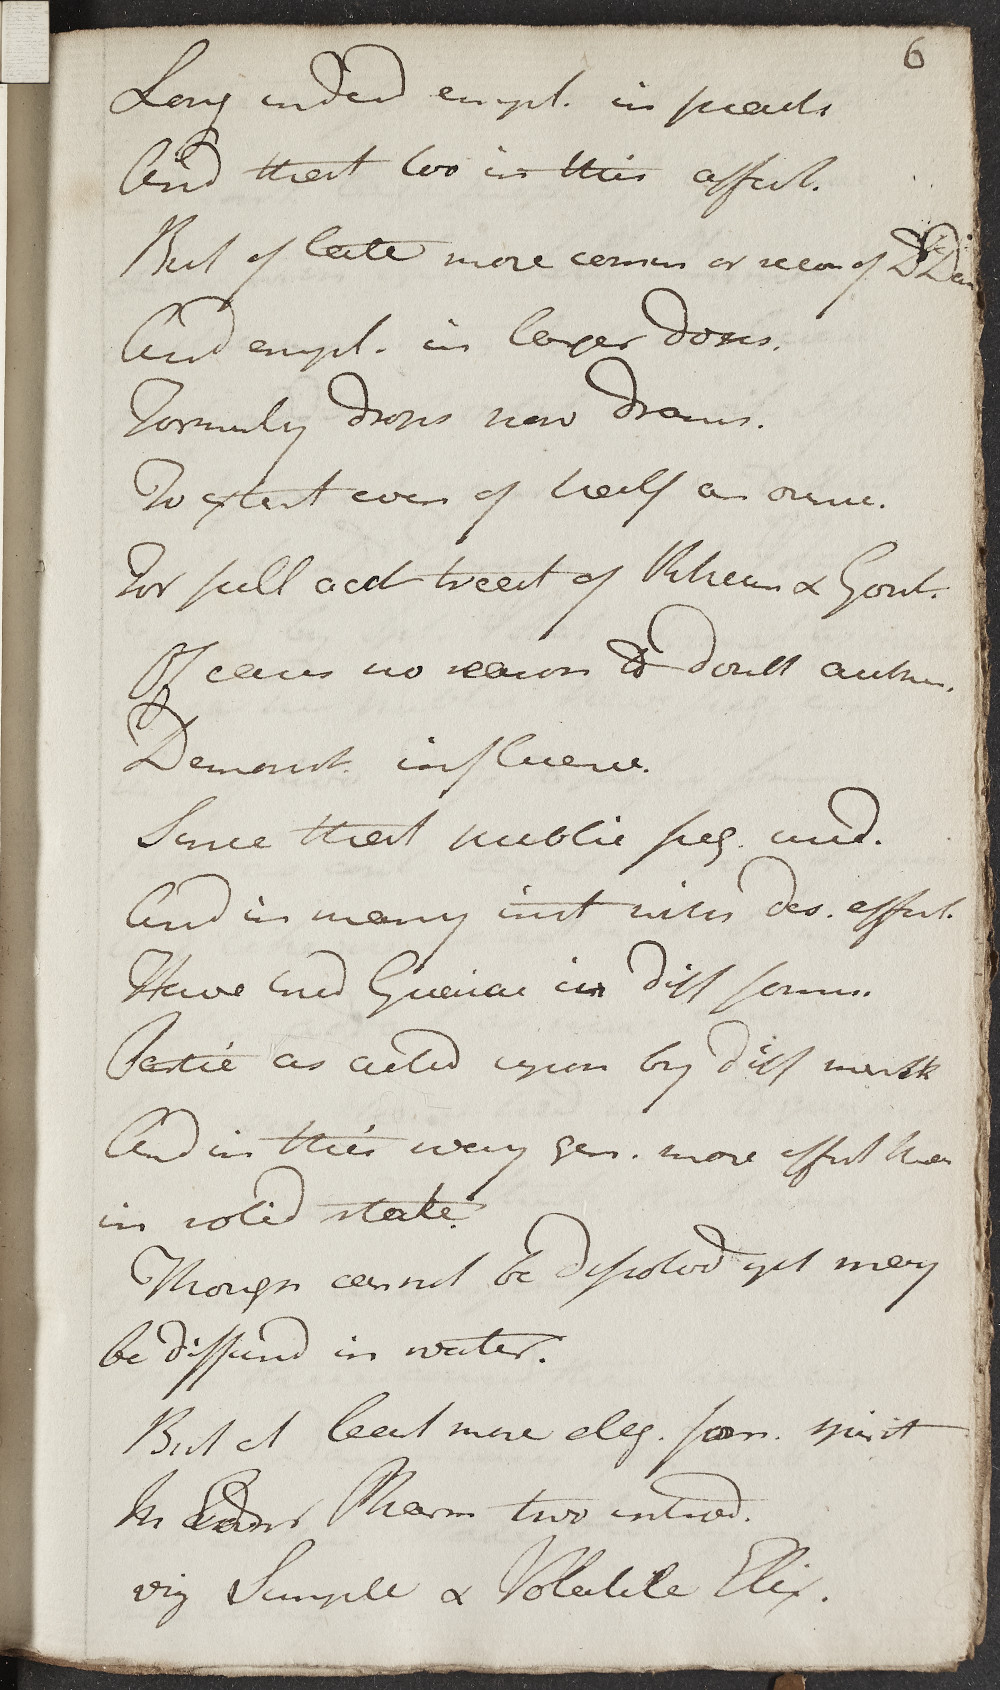 6
Long indeed empl. in pract.
And that too in this affect.
But of late more comm or recom of Dr Daw
And empl. in larger doses.
Formerly drops now drams.
To extent even of half an ounce.
For full acct treat of Rheum & Gout.
Of cases no reason to doubt authen.
Demonst. influence.
Since that public freq. used.
And in many inst with des. effect.
Have used Guaiac in diff forms.
Partic as acted upon by diff menstr
And in this way gen. more effect than
in solid state.
Though cannot be dissolved yet may
be diffused in water.
But at least more eleg. form. spirit
In Edinr Pharm two introd.
viz Simple & Volatile Elix.